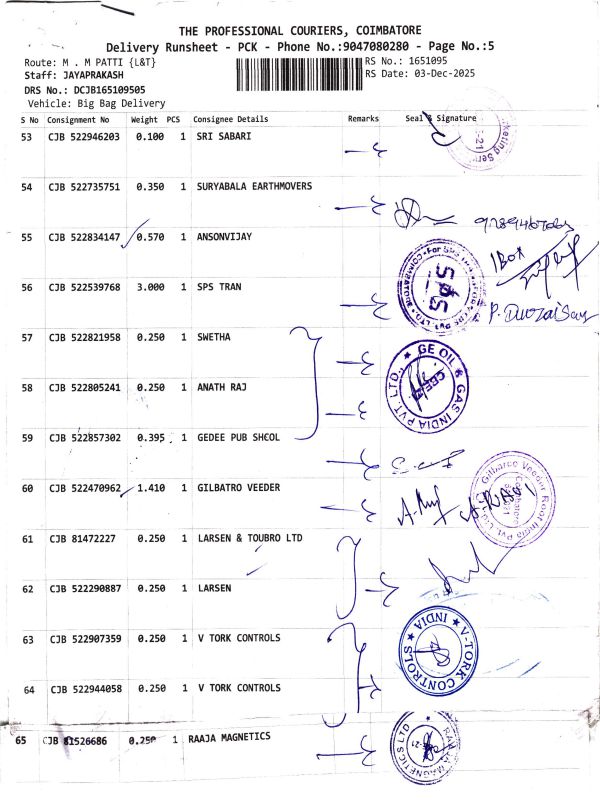 THE PROFESSIONAL COURIERS, COIMBATORE
Delivery Runsheet - PCK - Phone No.:9047080280 - Page No.:5
Route: M . M PATTI {L&T} RS No.: 1651095
Staff: JAYAPRAKASH RS Date: 03-Dec-2025
DRS No.: DCJB165109505
Vehicle: Big Bag Delivery
S No Consignment No Weight PCS Consignee Details Remarks Seal & Signature
53 CJB 522946203 0.100 1 SRI SABARI
54 CJB 522735751 0.350 1 SURYABALA EARTHMOVERS
55 CJB 522834147 0.570 1 ANSONVIJAY
1Box
56 CJB 522539768 3.000 1 SPS TRAN
SPS
57 CJB 522821958 0.250 1 SWETHA
GE OIL & GAS INDIA PVT. LTD.,
58 CJB 522805241 0.250 1 ANATH RAJ
59 CJB 522857302 0.395 1 GEDEE PUB SHCOL
60 CJB 522470962 1.410 1 GILBATRO VEEDER
Gilbarco Veeder Root India Pvt. Ltd.
61 CJB 81472227 0.250 1 LARSEN & TOUBRO LTD
62 CJB 522290887 0.250 1 LARSEN
63 CJB 522907359 0.250 1 V TORK CONTROLS
V-TORK CONTROLS INDIA
64 CJB 522944058 0.250 1 V TORK CONTROLS
65 CJB 81526686 0.250 1 RAAJA MAGNETICS
RAAJA MAGNETICS LTD